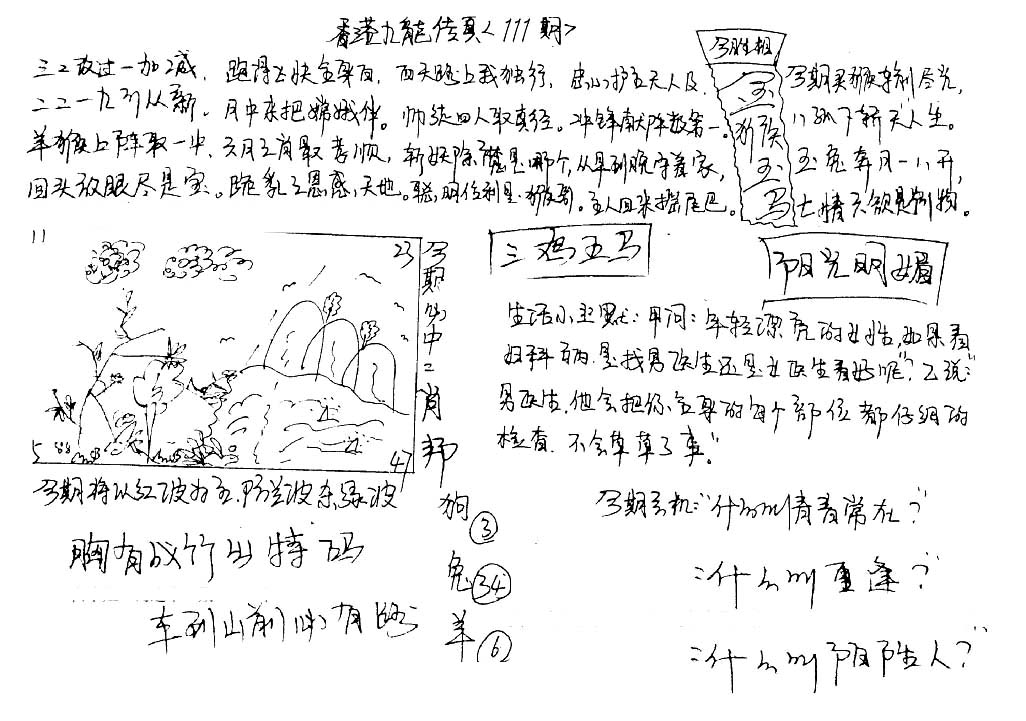 香港九龍传真<111期>
三二改过一加减，跑得去快全身白，西天路上我独行，忠心护主无人及，
二二一九引从新。月中末把嫦娥伴。师徒四人取真经。冲锋献阵数第一。
羊猴上阵取一半，六月三肖最孝顺，斩妖除魔是哪个，从早到晚守着家，
回头放眼尽是宝。跪乳之恩感天地。聪明伶利是猴哥。主人回来摇尾巴。
今期生相
玉
猴
玉
马
今期买猴
玉兔奔月一八开，
七情六欲是
11
23
5
47
今期必中二肖
狗③
兔㉞
羊⑥
三鸡五马
阳光明媚
生活小幽默：甲问：年轻漂亮的女性，如果看
妇科病，是找男医生还是女医生看好呢？"乙说：
男医生，他会把你全身的每个部位都仔细的
检查，不会草草了事。"
今期将以红波为主，防兰波杂绿波
胸有成竹出特码
车到山前必有路
今期玄机："什么叫情有常在？"
："什么叫重逢？"
："什么叫阴阳人？"